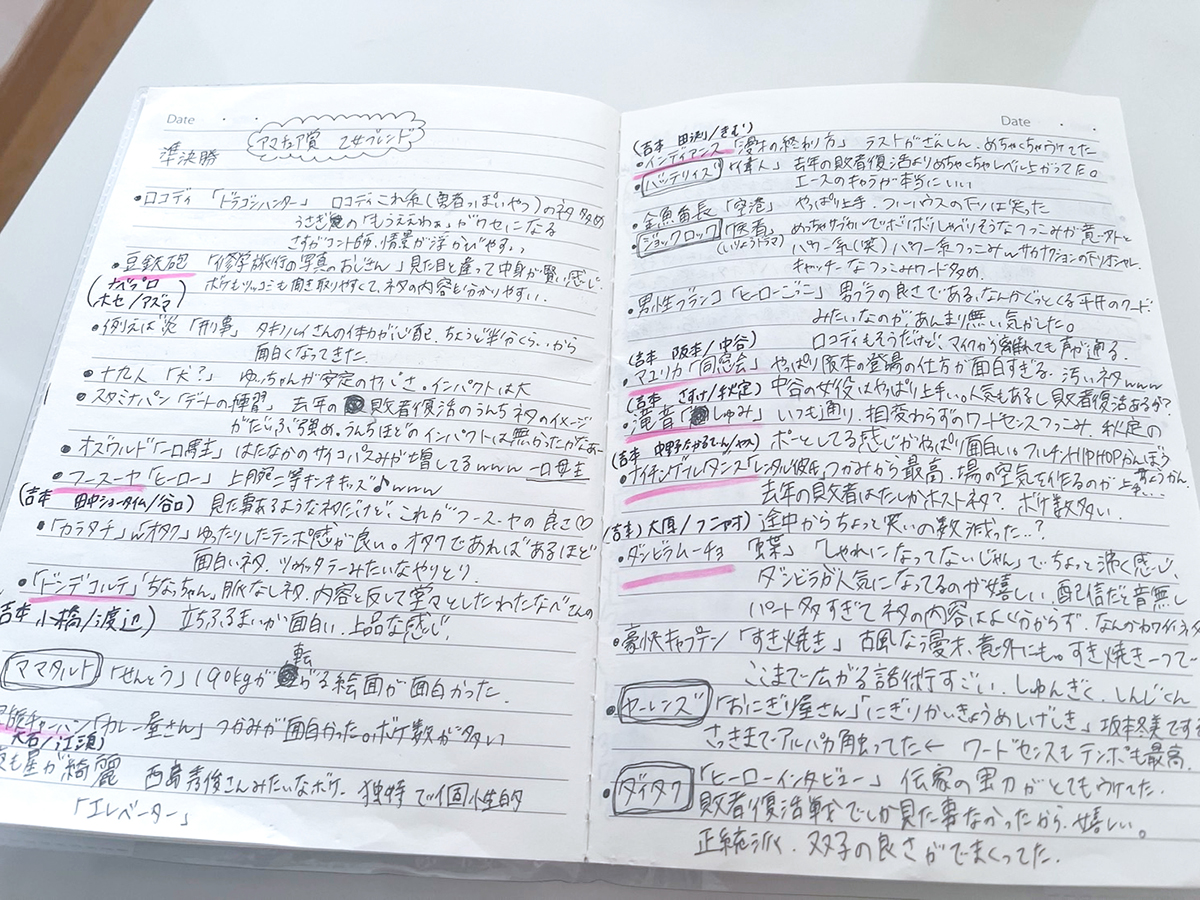 Date
アマチュア賞 乙女ブレンド
準決勝
・ロコディ 「ドラゴンハンター」 ロコディこれ系(勇者っぽいやつ)のネタ多め
うさぎの「もうええわぁ」がクセになる
さすがコント師、情景が浮かびやすい
・豆鉄砲 「修学旅行の写真のおじさん」見た目と違って中身が賢い感じ
(ナベプロ
ホセ/アズマ)
ボケもツッコミも聞き取りやすくて、ネタの内容も分かりやすい。
・例えば炎 「刑事」 タキノルイさんの体力が心配 ちょうど半分くらいから
面白くなってきた。
・十九人 「犬?」 ゆっちゃんが安定のヤバさ。インパクトは大
・スタミナパン「デートの練習」 去年の敗者復活のうんちネタのイメージ
がだいぶ強め。うんちほどのインパクトは無かったかなあ
・オズワルド「一口馬主」はたなかのサイコパスみが増してるwww 一口母主
・フースーヤ「ヒーロー」 上腕二等キンキキッズ♪www
(吉本 田中ショータイム/谷口) 見た事あるようなネタだけど、これがフースーヤの良さ♡
・「カラタチ」w「オタク」ゆったりしたテンポ感が良い。オタクであればあるほど
面白いネタ、ツッタラテーみたいなやりとり
・「ドンデコルテ」「ちょっちゃん」脈なしネタ、内容と反して堂々としたわたなべさんの
吉本 小橋/渡辺) 立ちふるまいが面白い、上品な感じ、
ママタルト 「せんとう」190kgが転がる絵面が面白かった
キャンパン「カレー屋さん」つかみが面白かった。ボケ数が多い
大吉/江頭)
も屋が綺麗 西島秀俊さんみたいなボケ。独特で個性的
「エレベーター」
Date
(吉本 田渕/きむ)
・インディアンス「漫才の終わり方」 ラストがざんしん、めちゃくちゃウケてた
・バッテリィズ「偉人」 去年の敗者復活よりめちゃくちゃレベル上がってた。
エースのキャラが本当にいい
・金魚番長「空港」 やっぱり上手、フルハウスの下りは笑った
・ジョックロック「医者」 めっちゃサブカルでボソボソしゃべりそうなつっこみが意外と
(いりょうドラマ) パワー系(笑)パワー系つっこみwサカナクションのドリオシャレ、
キャッチーなつっこみワード多め、
・男性ブランコ「ヒーローごっこ」 男ブラの良さである、なんかぐっとくる平井のワード
みたいなのが、あんまり無い気がした。
ロコディもそうだけど、マイクから離れても声が通る、
(吉本 阪本/中谷)
・マユリカ「同窓会」 やっぱり阪本の登場の仕方が面白すぎる、汚いネタwww
(吉本 さすけ/秋定) 中谷の女役はやっぱり上手い。人気もあるし敗者復活あるか?
・滝音「しゅみ」いつも通り、相変わらずのワードセンスつっこみ、秋定の
(吉本 中野なかるてぃん/ヤス) ボーとしてる感じがやっぱり面白い。フルチンHIPHOPかんぽう
ナイチンゲールダンス「レンタル彼氏」つかみから最高、場の空気を作るのが上手…
去年の敗者はたしかホストネタ? ボケ数多い、
(吉本) 大原/フニャオ) 途中からちょっと笑いの数減った..?
・ダンビラムーチョ 「蝶」 「しゃれになってないじゃん」でちょっと沸く感じ、
ダンビラが人気になってるのが嬉しい 配信だと音無し
パート多すぎてネタの内容はよく分からず、なんかカワイイネタ
・豪快キャプテン「すき焼き」 古風な漫才、意外にも。すき焼き一つで
ここまで広がる話術すごい、しゅんぎく、しんじくん
・ヤーレンズ「おにぎり屋さん」にぎりかいきょうめしげしき」坂本冬美です
さっきまでアルパカ触ってた← ワードセンスもテンポも最高
・ダイタク 「ヒーローインタビュー」 伝家の宝刀がとてもウケてた、
敗者復活戦をでしか見た事なかったから、嬉しい。
正統派、双子の良さがでまくってた.